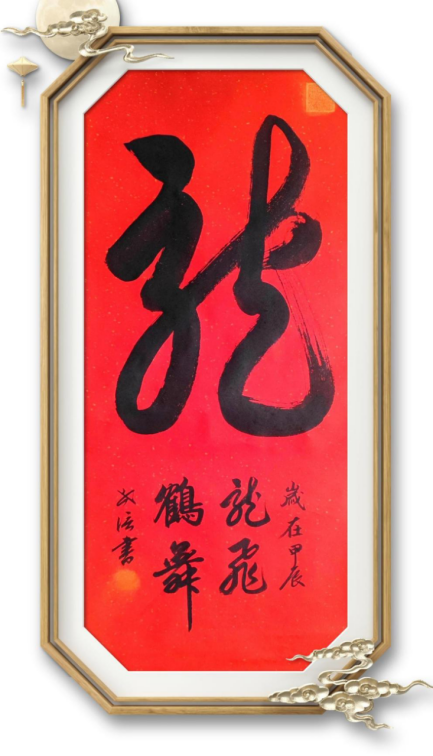 龍
歲在甲辰
龍飛
鶴舞